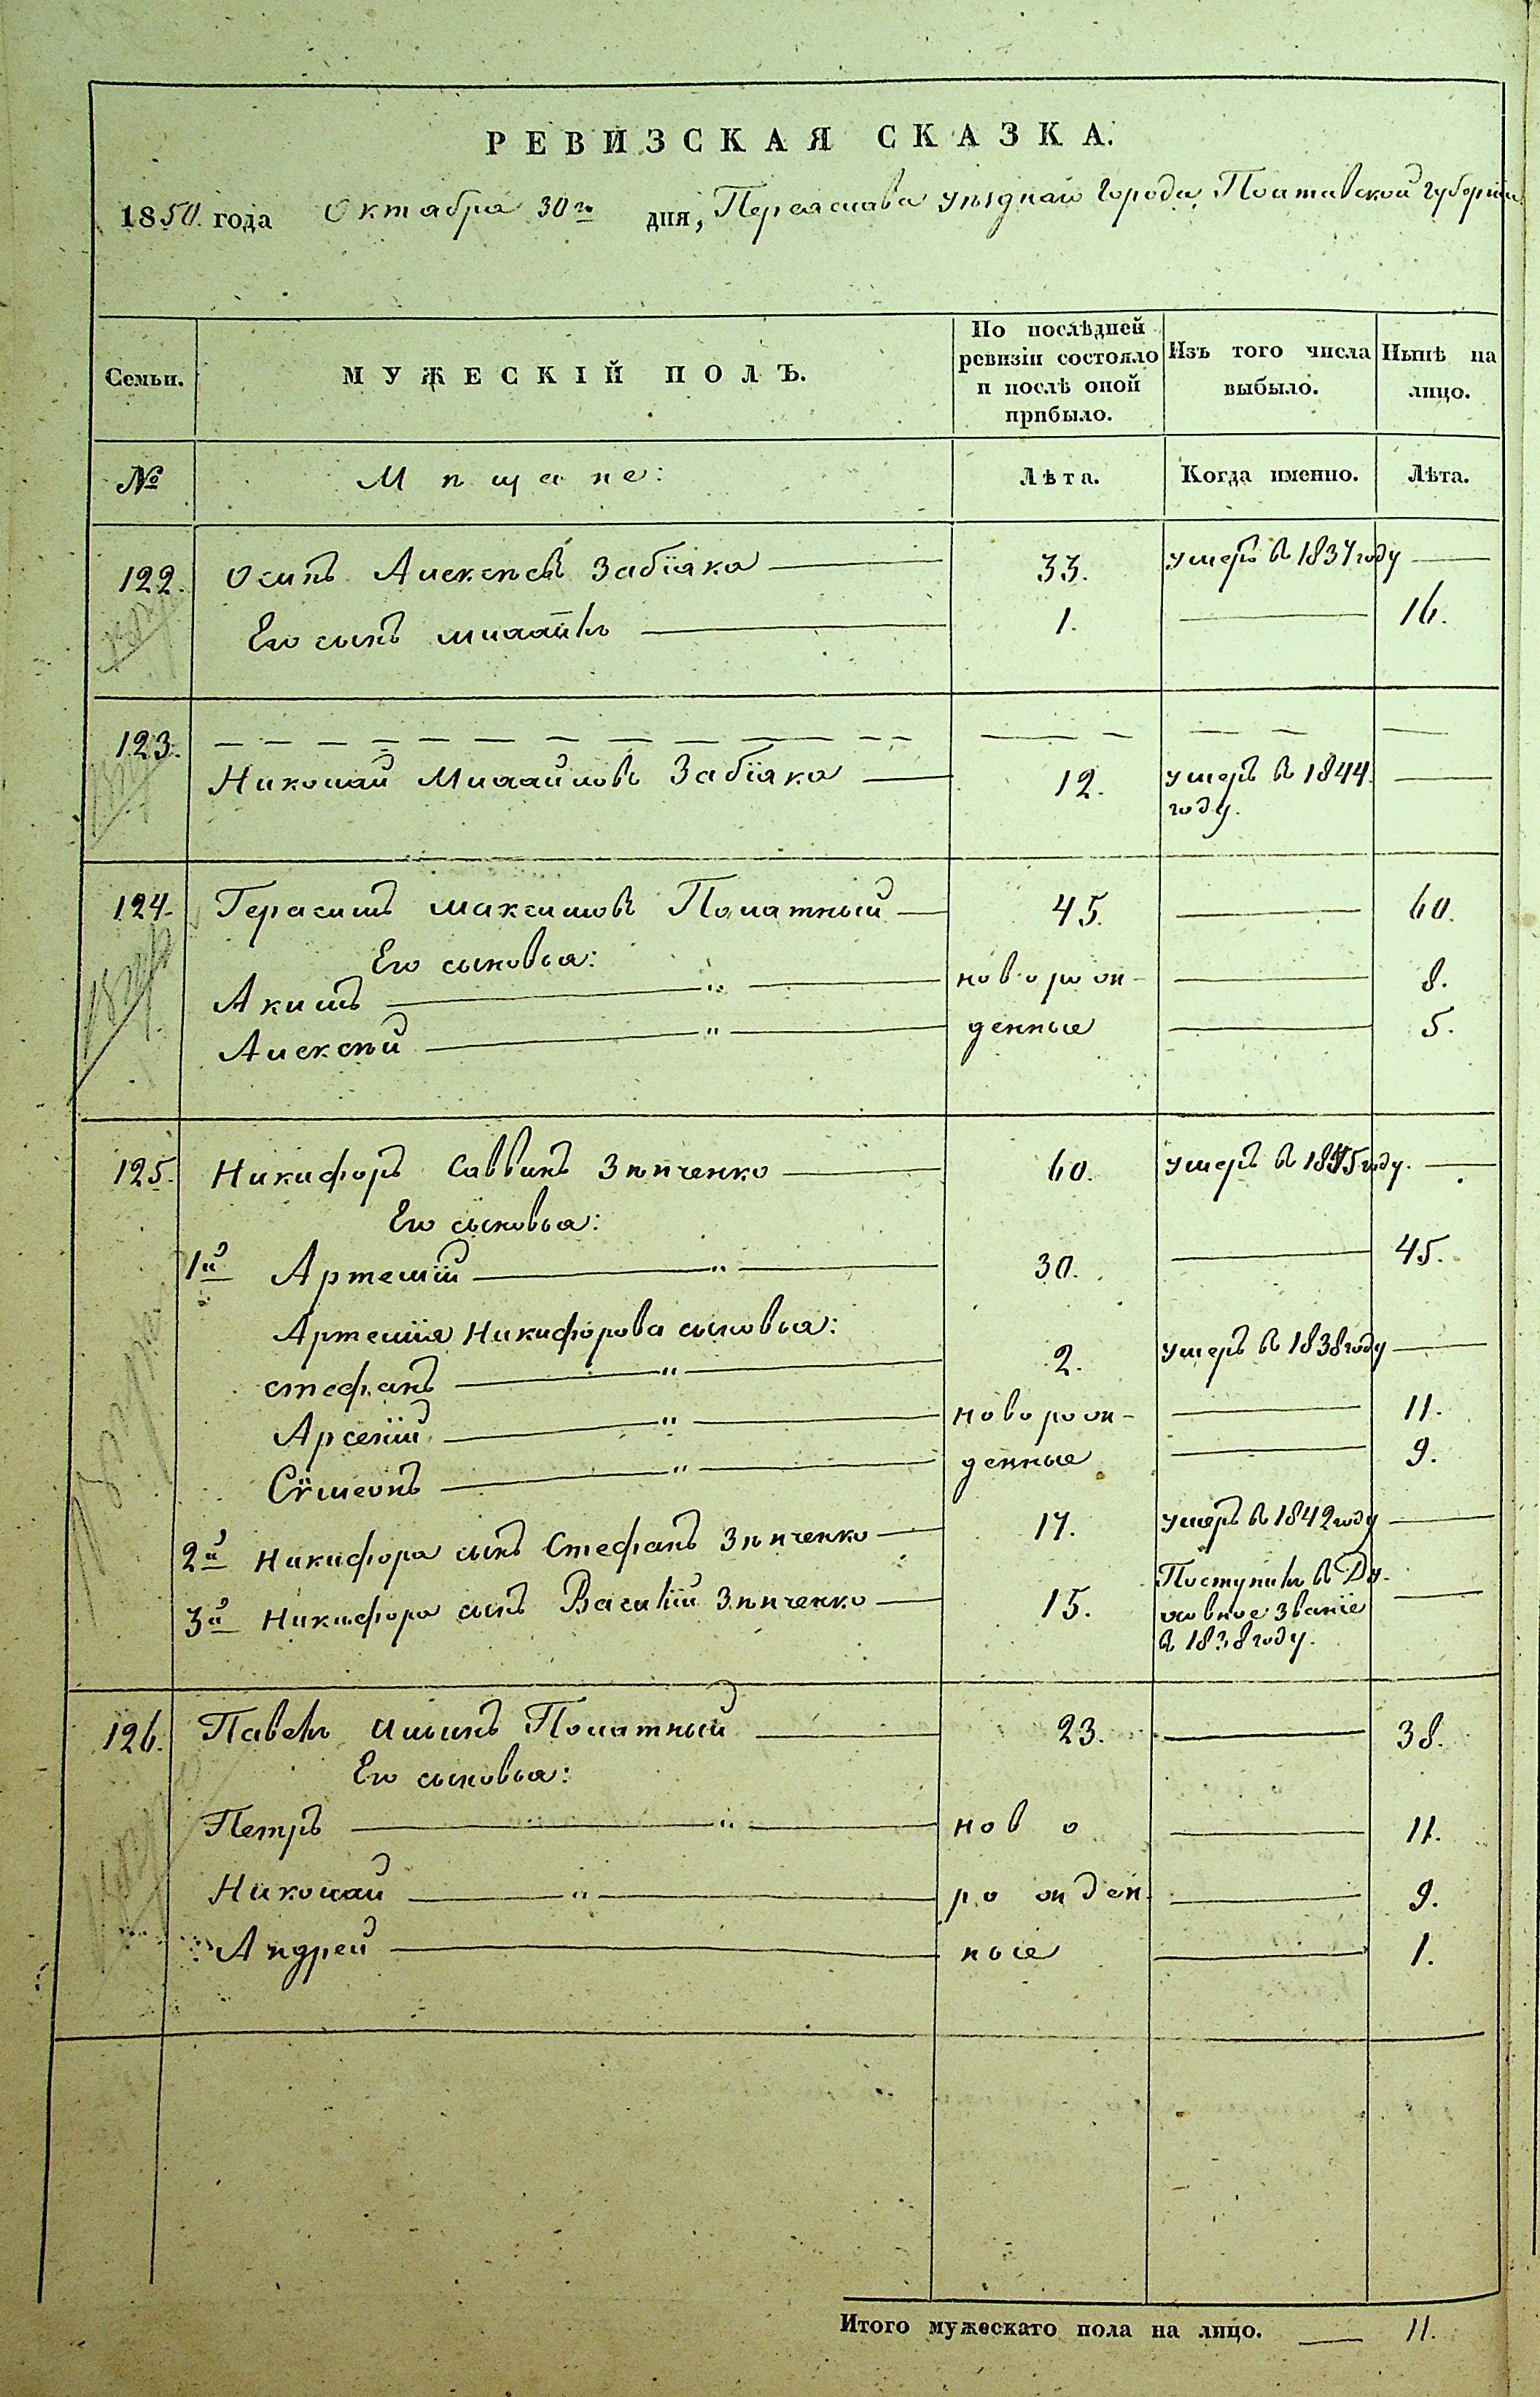 РЕВИЗСКАЯ СКАЗКА.
1850. года Октября 30го дня, Переяслава уѣзднаго города, Полтавской губерніи
Семьи. МУЖЕСКІЙ ПОЛЪ. По послѣдней ревизіи состояло и послѣ оной прибыло. Изъ того числа выбыло. Нынѣ на лицо.
№ Мѣщане: Лѣта. Когда именно. Лѣта.
122. Осипъ Алексѣевъ Забіяка 33. умеръ въ 1837 году
Его сынъ Михаилъ 1. 16.
123.
Николай Михайловъ Забіяка 12. умеръ въ 1844.
году.
124. Герасимъ Максимовъ Полатный 45. 60.
Его сыновья:
Акимъ " новорож- 8.
Алексѣй " денные 5.
125. Никифоръ Саввинъ Зѣнченко 60. умеръ въ 1845 году.
Его сыновья:
1й Артемій " 30. 45.
Артемія Никифорова сыновья:
Стефанъ " 2. умеръ въ 1838 году
Арсеній " новорож- 11.
Сѷмеонъ " денные 9.
2й Никифора сынъ Стефанъ Зѣнченко 17. умеръ въ 1842 году
3й Никифора сынъ Василій Зѣнченко 15. Поступилъ въ Ду-
ховное званіе
въ 1838 году.
126. Павелъ Ильинъ Полатный 23. 38.
Его сыновья:
Петръ " ново 11.
Николай " рожден- 9.
Андрей ные 1.
Итого мужескаго пола на лицо. 11.